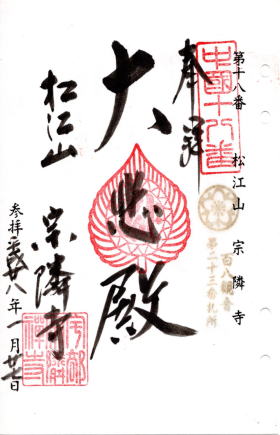 第十八番 松江山 宗隣寺
百八観音
第二十三番札所
中国十八番
奉拝
大悲殿
松江山
宗隣寺
参拝 平成廿八年一月廿七日